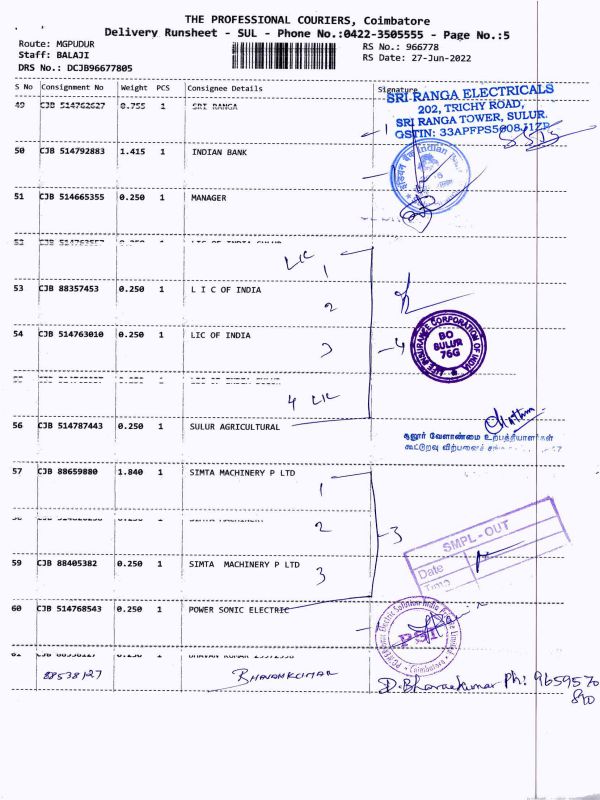 THE PROFESSIONAL COURIERS, Coimbatore
Delivery Runsheet - SUL - Phone No.:0422-3505555 - Page No.:5
Route: MGPUDUR
Staff: BALAJI
DRS No.: DCJB96677805
RS No.: 966778
RS Date: 27-Jun-2022
S No Consignment No Weight PCS Consignee Details Signature
49 CJB 514762627 0.755 1 SRI RANGA
SRI RANGA ELECTRICALS
202, TRICHY ROAD,
SRI RANGA TOWER, SULUR.
GSTIN: 33APFPS5608J1ZP
50 CJB 514792883 1.415 1 INDIAN BANK
Indian
51 CJB 514665355 0.250 1 MANAGER
52 LIC OF INDIA SULUR
LIC
1
53 CJB 88357453 0.250 1 L I C OF INDIA
2
54 CJB 514763010 0.250 1 LIC OF INDIA
3
4
LIFE INSURANCE CORPORATION OF INDIA
BO
SULUR
76G
4 LIC
56 CJB 514787443 0.250 1 SULUR AGRICULTURAL
சூலூர் வேளாண்மை உற்பத்தியாளர்கள்
கூட்டுறவு விற்பனைச்
57 CJB 88659880 1.840 1 SIMTA MACHINERY P LTD
1
SIMTA MACHINERY
2
3
SMPL-OUT
Date
Time
59 CJB 88405382 0.250 1 SIMTA MACHINERY P LTD
3
60 CJB 514768543 0.250 1 POWER SONIC ELECTRIC
PSI
Coimbatore
61 CJB 88538127 0.250 1
88538127 BHAVANKUMAR
Ph: 9659570